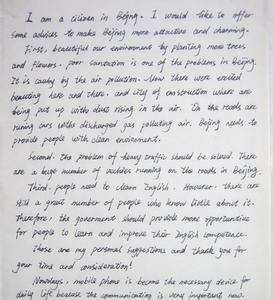 I am a citizen in Bejing. I would like to offer
some advices to make Beijing more attractive and charming.
First, beautiful our environment by planting more trees
and flowers. poor sanitation is one of the problems in Beijing.
It is cauby by the air pollution. Now there were erected
beauting here and there. and city of cassruction where are
being put up with dust rising in the air. On the roads are
runing cars withs discharged gas polluting air. Beijing needs to
provide people with clean enviroment.
Second. the problem of heavy traffic should be solved. There
are a huge number of vechies running on the roads in Beijing.
Third, people need to clearn English. However. there are
still a great number of people who know liddle about it.
therefore, the government should provide more opportunities
for people to learn and improve their English competence.
Those are my personal suggestions and thank you for
your time and consideration!
Nowdays, mobile phone is become the necessary device for
daily life because the communication is very important now.